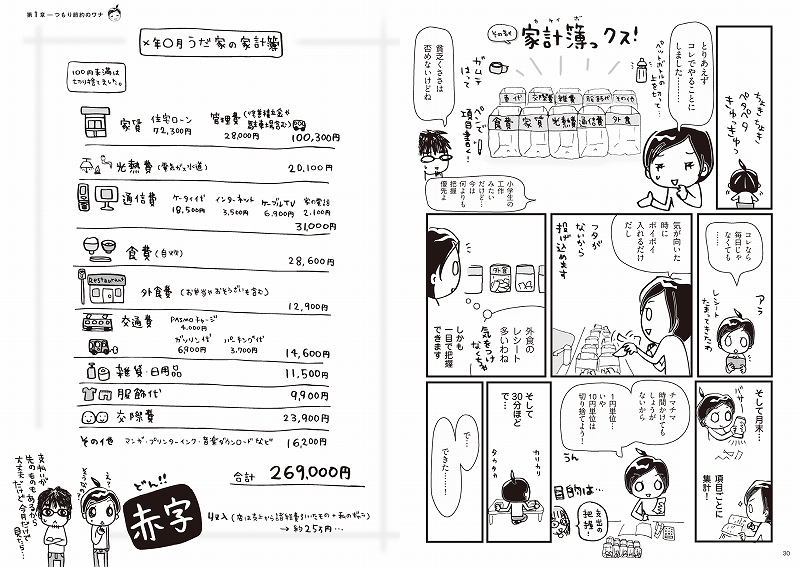 その名も
家計簿っクス!
カケイボ
とりあえず
コレでやることに
しました……
ペットボトルの
上を切って…
ガムテ
はって
ペンで
項目書く!
書代
交際費
雑費
服飾代
その他
食費
家賃
光熱費
通信費
外食
貧乏くささは
否めないけどね
小学生の
工作
みたい
だけど…
今は
何よりも
把握
優先よ
ちょきちょき
ペタペタ
きゅっきゅっ
コレなら
毎日じゃ
なくても
……
アラ
レシート
たまってきたわ
気が向いた
時に
ポイポイ
入れるだけ
だし
フタが
ないから
投げ込めます
外食
外食の
レシート
多いわね
気をつけ
なくちゃ
しかも
一目で把握
できます
そして月末…
バサー
項目ごとに
集計!
チマチマ
時間かけても
しょうが
ないから
1円単位は
いや
10円単位は
切り捨てよう!
うん
目的は…
支出の
把握!
そして
30分ほど
で…
カリカリ
タカタカ
で…
できた……!
30
第1章―つもり節約のワナ
×年○月うだ家の家計簿
100円未満は
切り捨てました。
家賃 住宅ローン 72,300円 管理費(修繕積立金や駐車場含む) 28,000円 100,300円
光熱費(電気ガス水道) 20,100円
通信費 ケータイ代 18,500円 インターネット 3,500円 ケーブルTV 6,900円 家の電話 2,100円
31,000円
食費(自炊) 28,600円
Restaurant
外食費(お弁当やおそうざいも含む) 12,900円
交通費 PASMOチャージ 4,000円
ガソリン代 6,900円 パーキング代 3,700円 14,600円
雑貨・日用品 11,500円
服飾代 9,900円
交際費 23,900円
その他 マンガ・プリンターインク・音楽ダウンロードなど 16,200円
合計 269,000円
どん!!
赤字
→約25万円…
支払いが
先のものもあるから
大丈夫だけど今月だけで
見たら…